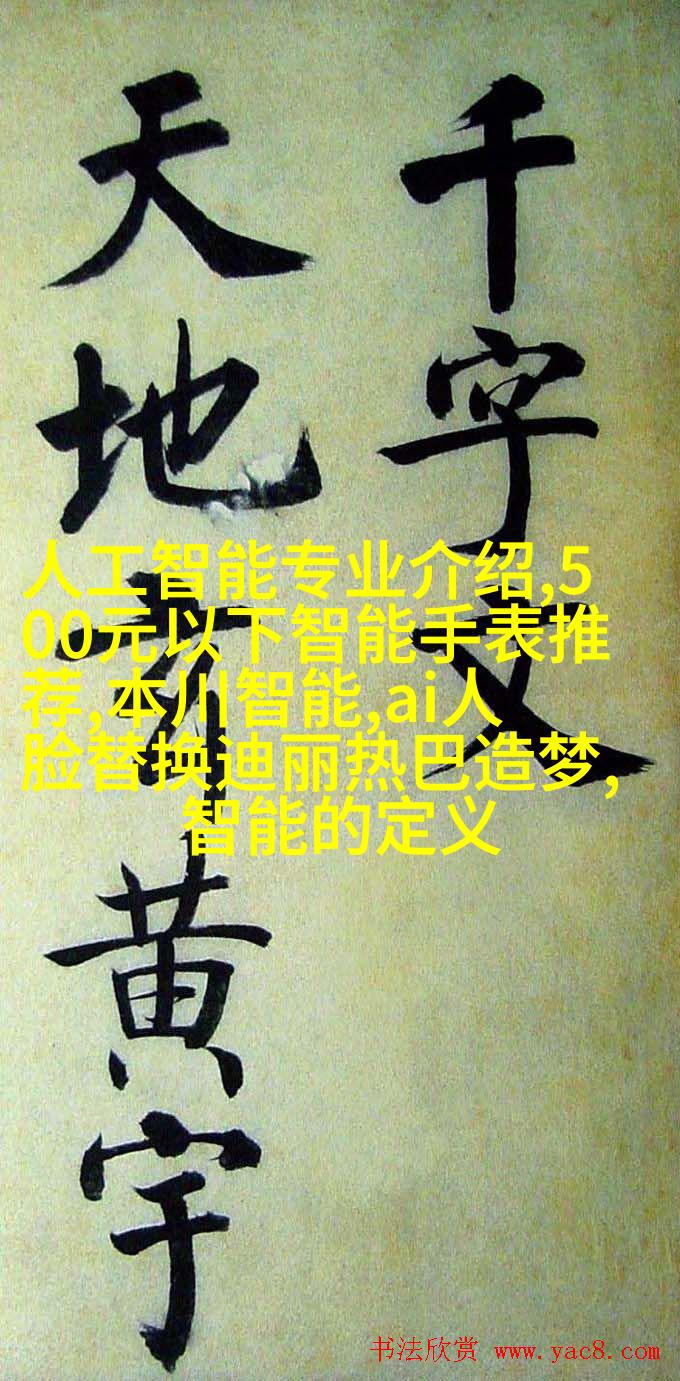 千字文
天地玄黄宇
人工智能专业介绍,5
00元以下智能手表推
荐,本川智能,ai人
脸替换迪丽热巴造梦,
智能的定义
书法欣赏 www.yac8.com